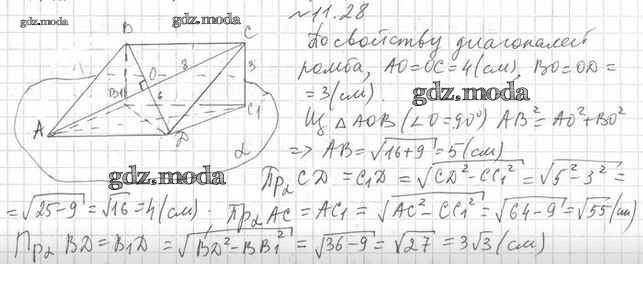 gdz.moda
gdz.moda
№11.28
B
C
По свойству диагоналей
ромба, AO=OC=4(см), BO=OD=
=3(см).
gdz.moda
O
8
3
B1
6
C1
A
D
α
Из △AOB (∠O=90°) AB²=AO²+BO²
=> AB=√16+9=5(см)
gdz.moda
Пр₂ CD = C1D = √CD²-CC1² = √5²-3² =
=√25-9=√16=4(см). Пр₂ AC = AC1 = √AC²-CC1²=√64-9=√55(см)
Пр₂ BD=B1D = √BD²-BB1² = √36-9 = √27 = 3√3 (см)